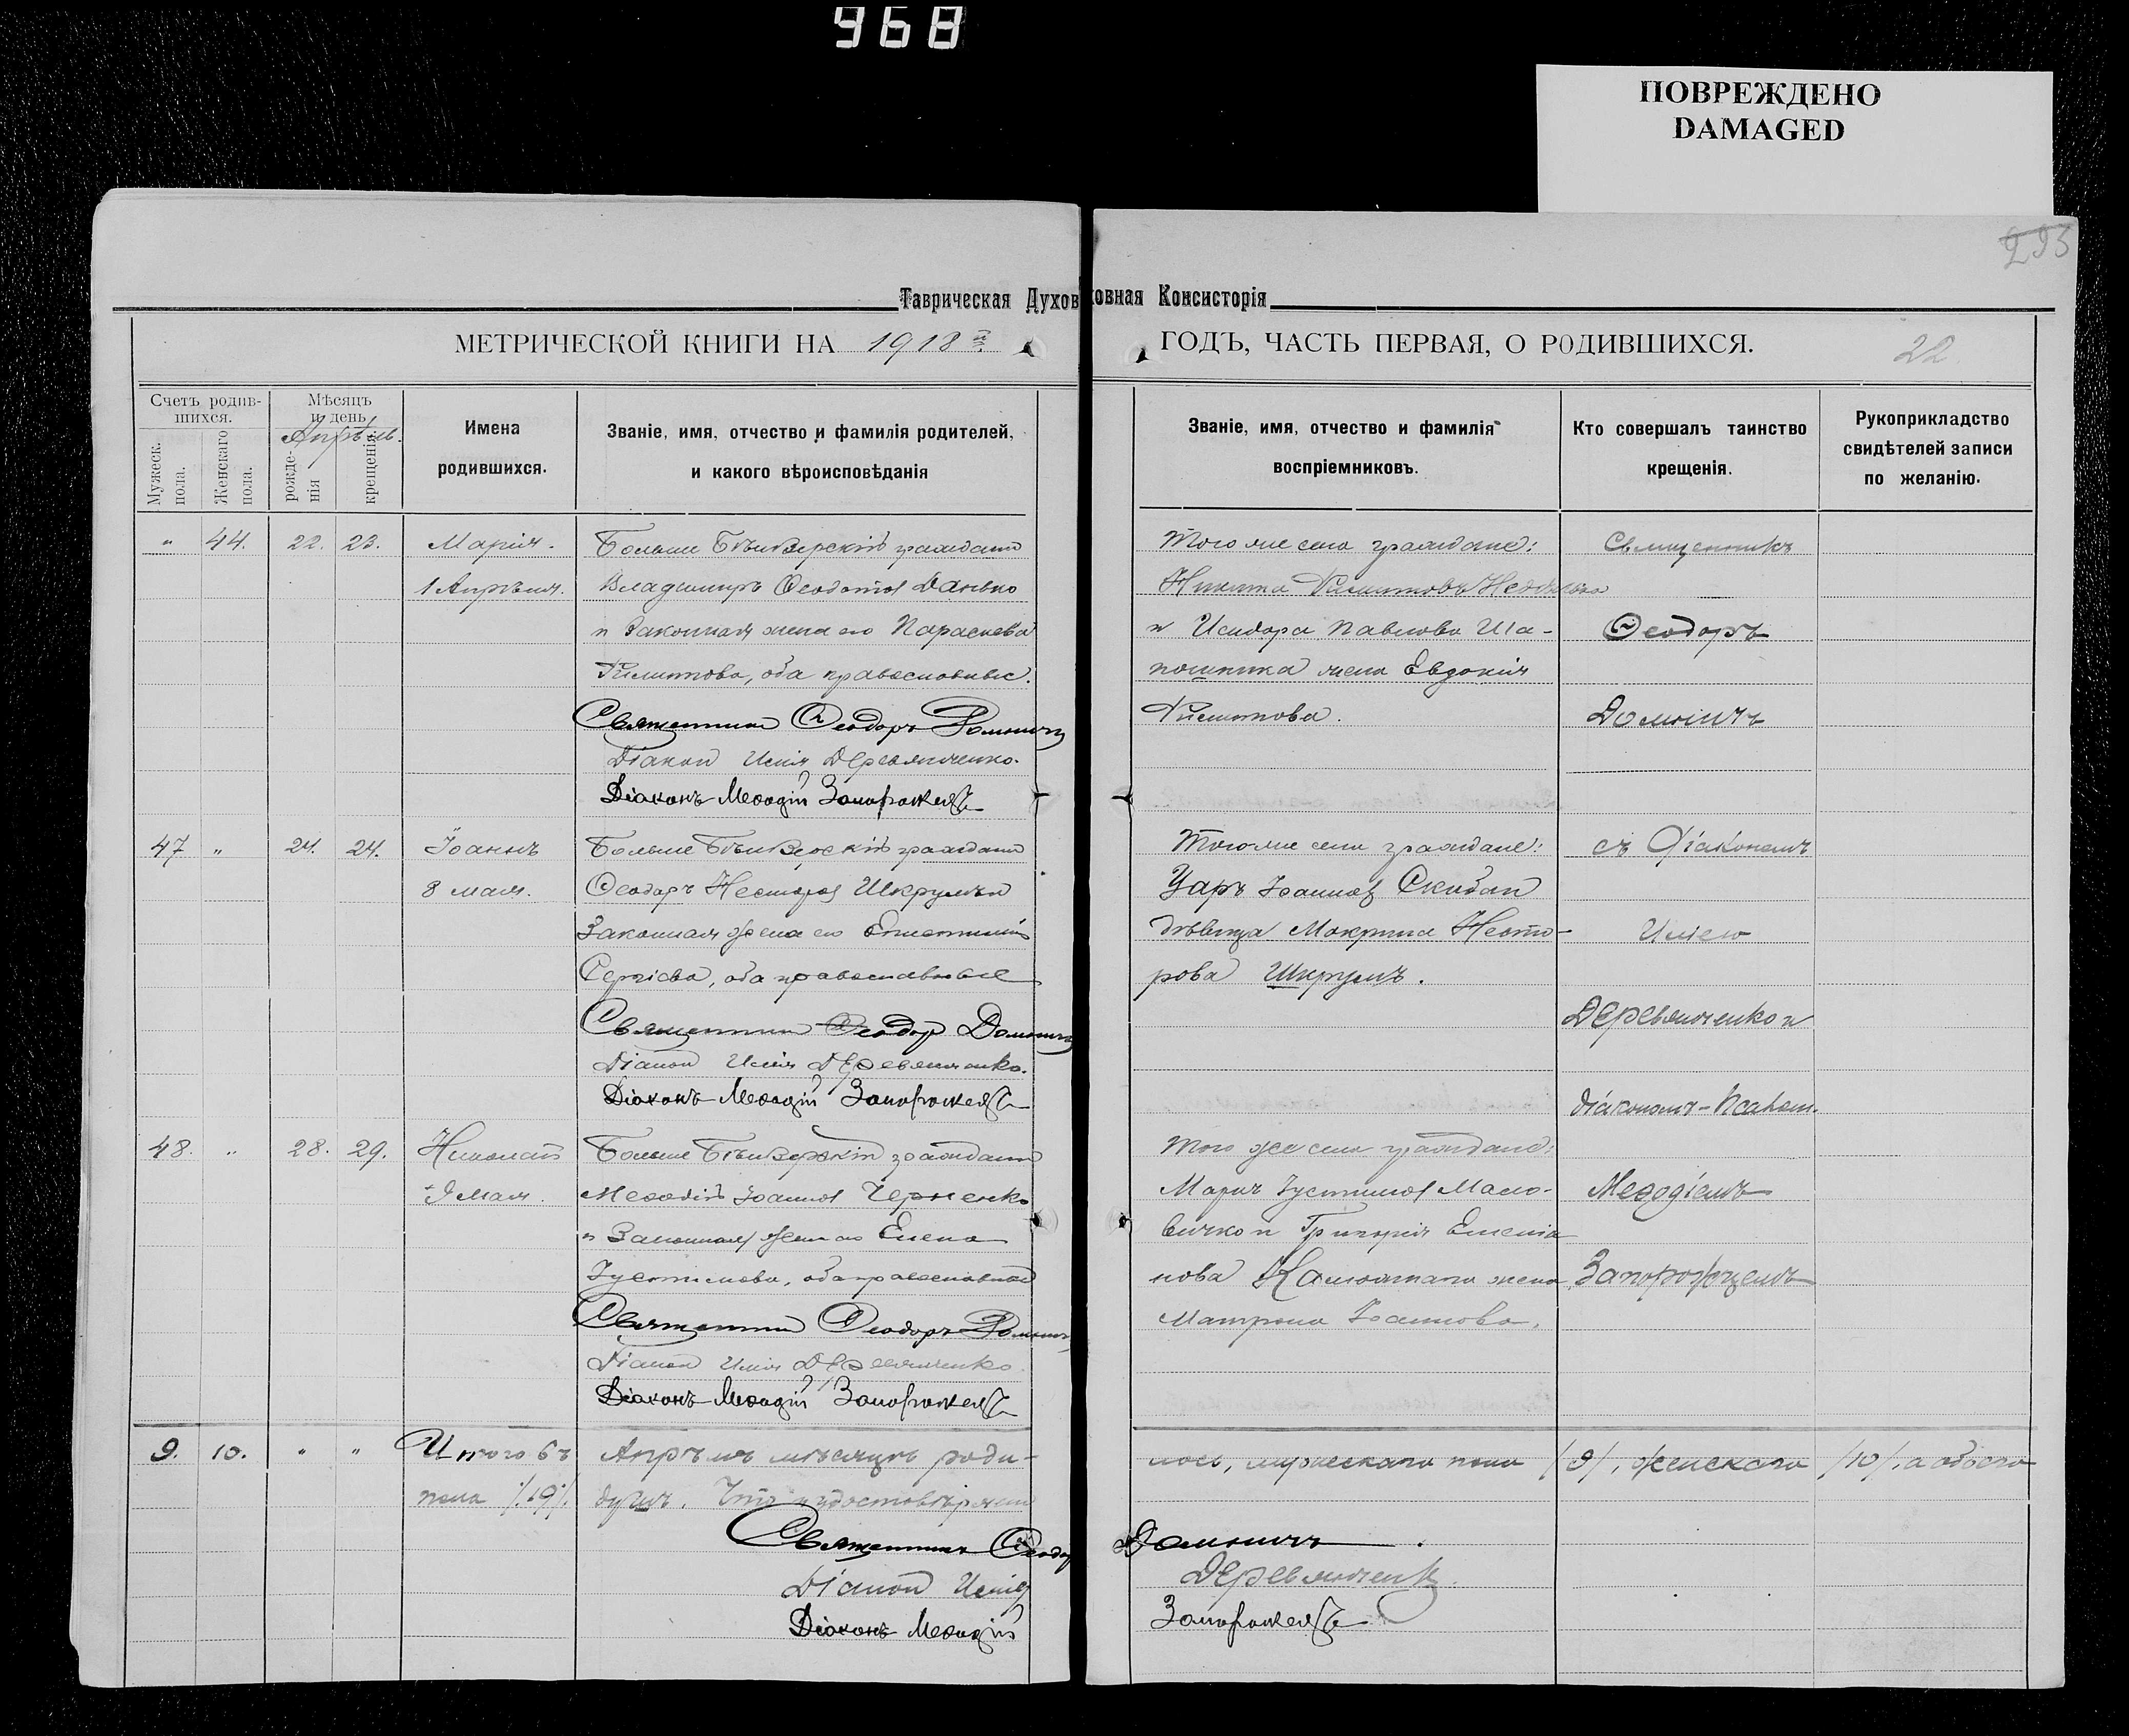 968
ПОВРЕЖДЕНО
DAMAGED
293
Таврическая Духовная Консисторія
МЕТРИЧЕСКОЙ КНИГИ НА 1918й ГОДЪ, ЧАСТЬ ПЕРВАЯ, О РОДИВШИХСЯ. 22
Счетъ родившихся.
Мужеск. пола.
Женскаго пола.
Мѣсяцъ и день
Апрѣль.
рожденія
крещенія.
Имена родившихся.
Званіе, имя, отчество и фамилія родителей, и какого вѣроисповѣданія
Званіе, имя, отчество и фамилія воспріемниковъ.
Кто совершалъ таинство крещенія.
Рукоприкладство свидѣтелей записи по желанію.
" 44. 22. 23. Марія.
1 Апрѣля.
Больше Бѣлозерскій гражданин
Владиміръ Ѳеодотов Данько
и законная жена его Параскева
оба православные.
Священник Ѳеодоръ
Діакон Илія Деревянченко.
Діаконъ Меѳодій Запорожецъ
Того же села граждане:
Никита
и Исидора Павлова Ша-
жена Евдокія
Священникъ
Ѳеодоръ
47 " 24. 24. Іоаннъ
8 мая.
Больше Бѣлозерскій гражданин
Ѳеодоръ Несторов
Законная жена его
Сергіева, оба православные
Священник Ѳеодор
Діакон Илія Деревянченко.
Діаконъ Меѳодій Запорожецъ
Того же села граждане:
Іоаннов Скибан
дѣвица Макрина Несто-
рова
съ Діакономъ
Иліею
Деревянченко и
діакономъ-Псалом.
48. " 28. 29. Николай
9 Мая.
Больше Бѣлозерскій гражданин
Меѳодій Іоаннов Черненко
и Законная жена его Елена
Іустинова, оба православные
Священник Ѳеодоръ
Діакон Илія Деревянченко
Діаконъ Меѳодій Запорожецъ
Того же села граждане:
Іустинов
и Григорія
нова жена
Матрона Іоаннова.
Меѳодіемъ
Запорожцемъ
9. 10. " " Итого въ Апрѣлѣ мѣсяцѣ роди-
лось, мужескаго пола /9/, женскаго /10/, а обоего
пола /19/. душъ. Что и удостовѣряем
Священникъ Ѳеодор
Діакон Илія Деревянченк
Діаконъ Меѳодій Запорожецъ